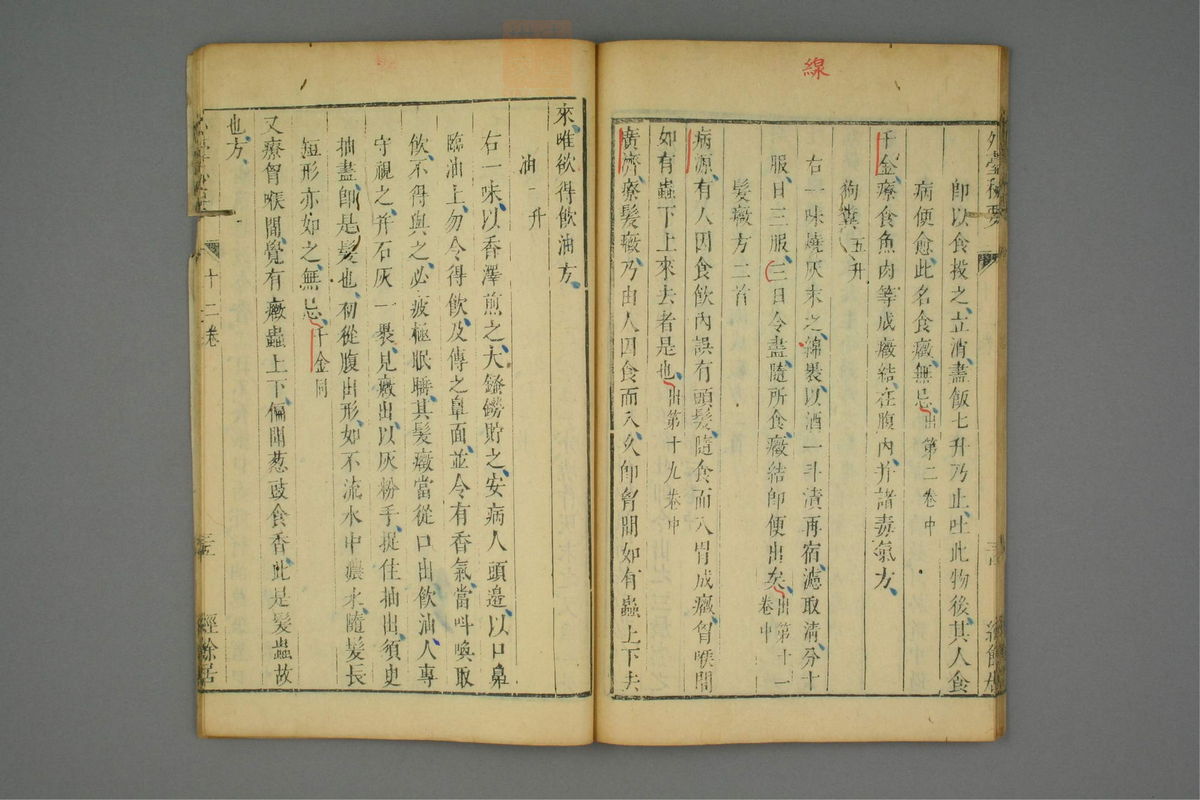 線
外臺秘要
即以食投之立消盡飯七升乃止吐此物後其人食
病便愈此名食癥無忌出第二卷中
千金療食魚肉等成癥結在腹內幷諸毒氣方
狗糞五升
右一味燒灰末之綿裹以酒一斗漬再宿濾取清分十
服日三服三日令盡隨所食癥結即便出矣出第十一卷中
髮癥方二首
病源有人因食飲內誤有頭髮隨食而入胃成癥胷喉間
如有蟲下上來去者是也出第十九卷中
廣濟療髮癥乃由人因食而入久即胷間如有蟲上下去
來唯欲得飲油方
油一升
右一味以香澤煎之大鏴鐒貯之安病人頭邊以口鼻
臨油上勿令得飲及傅之鼻面並令有香氣當叫喚取
飲不得與之必疲極眠睡其髮癥當從口出飲油人專
守視之幷石灰一裹見癥出以灰粉手捉住抽出須臾
抽盡即是髮也初從腹出形如不流水中濃水隨髮長
短形亦如之無忌千金同
又療胷喉間覺有癥蟲上下偏聞葱豉食香此是髮蟲故
也方
十二卷
經餘居